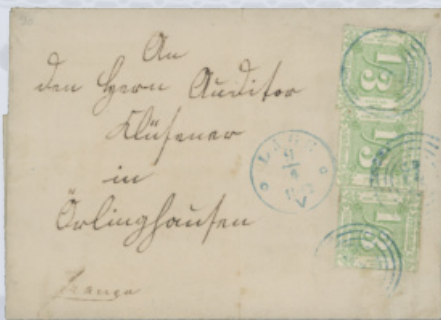 An
den Herrn Auditor
Klüsener
in
Örlinghausen
franco
LAGE
1/3
1/3
1/3